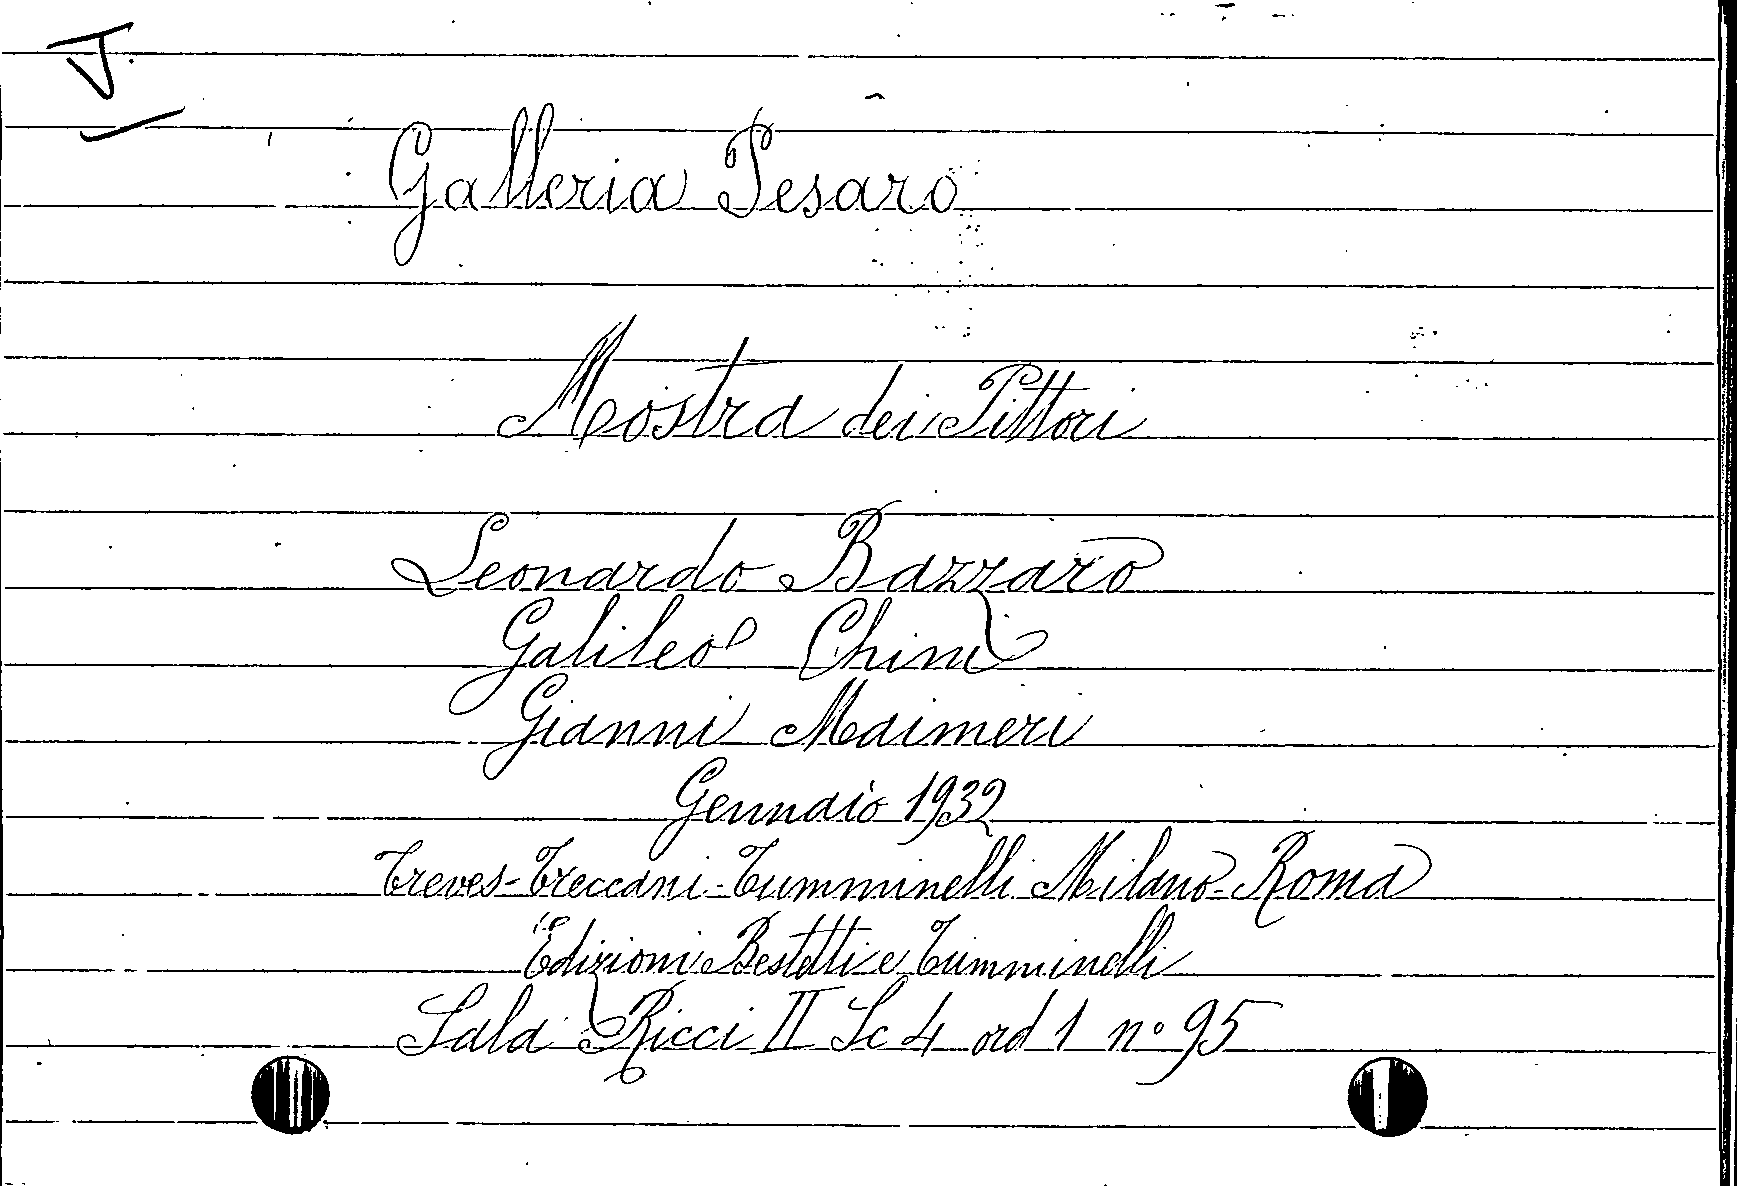 J.
Galleria Pesaro
Mostra dei Pittori
Leonardo Bazzaro
Galileo Chini
Gianni Maimeri
Gennaio 1932
Treves-Treccani-Tumminelli Milano-Roma
Edizioni Bestetti e Tumminelli
Sala Ricci II Sc 4 ord 1 n° 95